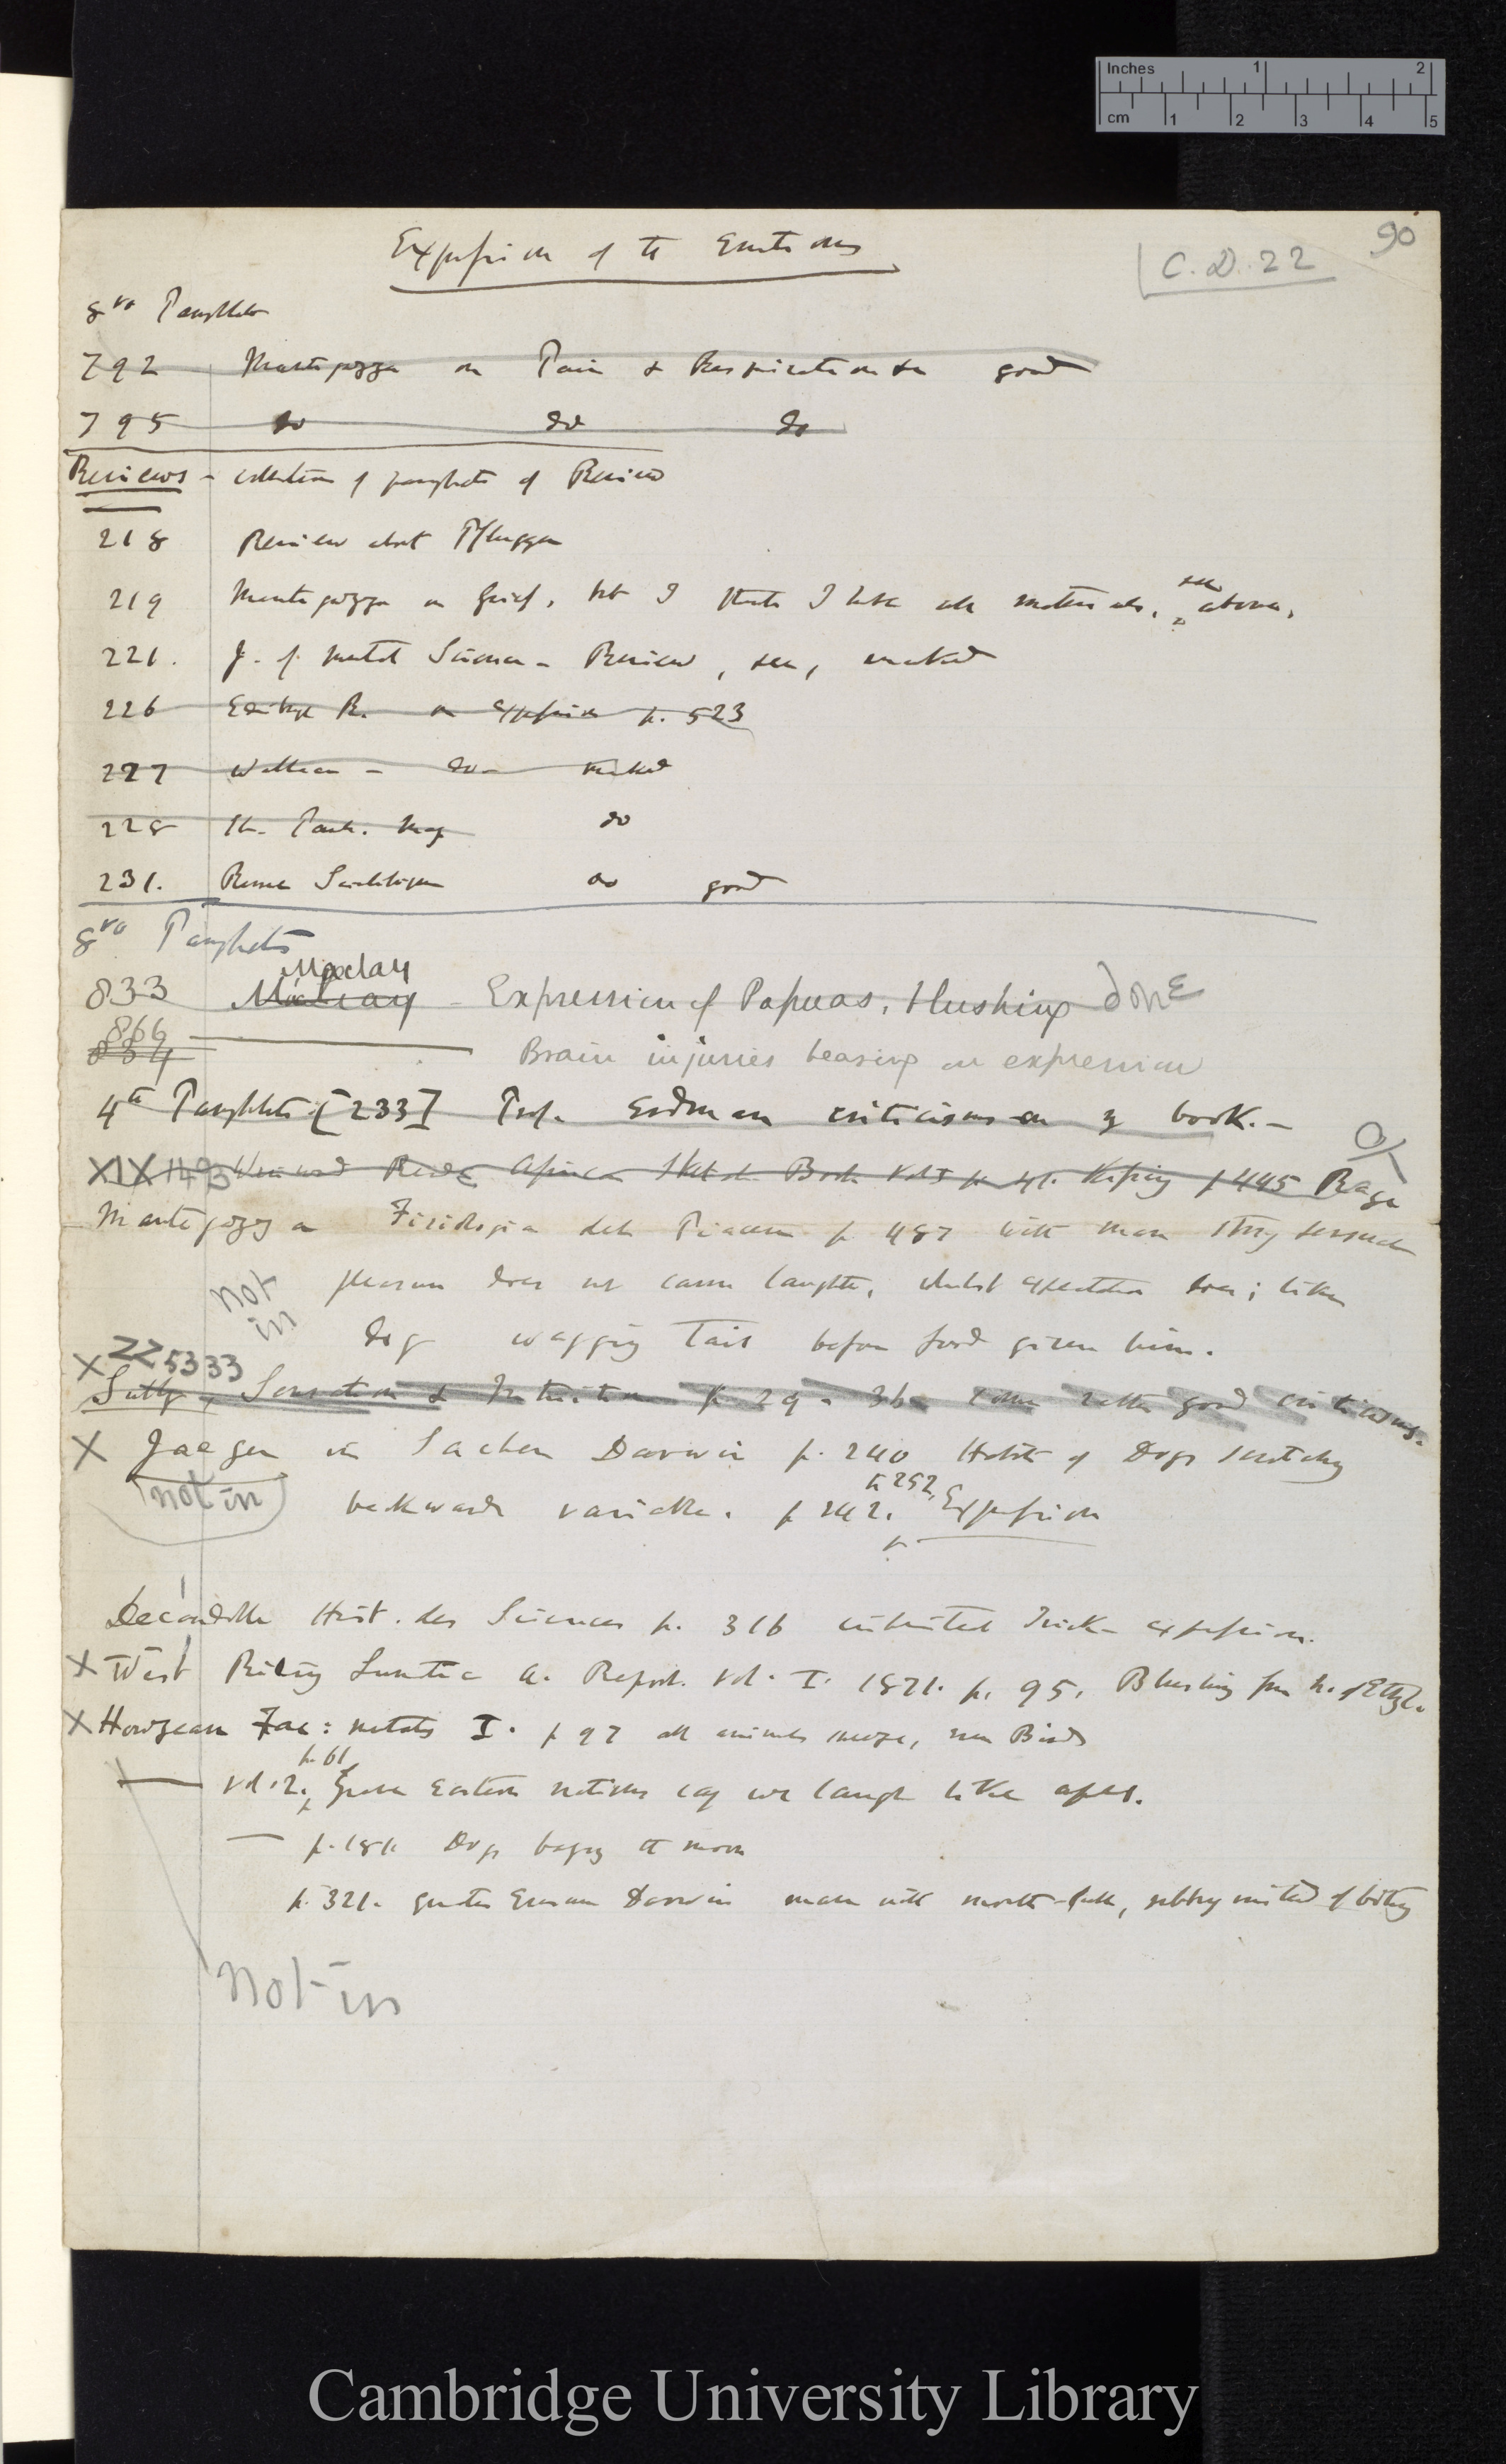 Inches 1 2
cm 1 2 3 4 5
90
C. D. 22
Expression of the Emotions
8vo Pamphlets
792 Mantegazza on Pain & Respiration &c good
795 do do do
Reviews - collection of pamphlets of Review
218 Review about
219 Mantegazza on Grief, but I think I have all materials, see above.
221. J. of Mental Science - Review, see, marked
226 Edinburgh R. on Expression p. 523
227 Wallace - do - marked
228 do
231. do good
8vo Pamphlets
Maclay
833 Expression of Papuas, blushing done
866
834 Brain injuries bearing on expression
4to Pamphlets [233] Prof. Erdman criticisms on my book. -
XIX 143 Winwood Reade African Sketch Book Vol I p 41. Kissing p 445 Rage
Mantegazza Fisiologia del Piacere p 487 with man strong sexual
pleasure does not cause laughter, whilst expectation does; like
not in
dog wagging tail before food given him.
X 225333
Sully, Sensation & Intuition p 29 - 36 some rather good criticisms.
X Jaeger in Sachen Darwin p. 240 Habit of Dogs scratching
not in
backwards variable. p 242. to 252, Expression
Decandolle Hist. des Sciences p. 316 inherited trick - expression.
X West Riding Lunatic A. Report. Vol. I. 1871. p. 95, Blushing from N. of Ethyl.
X Houzeau Fac: mentales I. p 97 all animals sneeze, even Birds
— vol. 2. p. 61, Some Eastern natives say we laugh like apes.
— p. 181 Dogs baying the moon
p. 321. quotes Erasmus Darwin man with mouth full, rubbing instead of biting
not in
Cambridge University Library